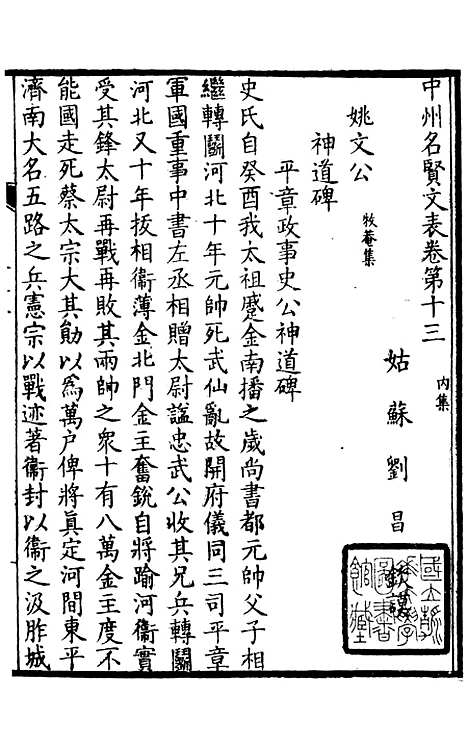 中州名賢文表卷第十三
內集
姑蘇劉昌
姚文公
牧菴集
神道碑
平章政事史公神道碑
史氏自癸酉我太祖蹙金南播之歲尚書都元帥父子相
繼轉鬬河北十年元帥死武仙亂故開府儀同三司平章
軍國重事中書左丞相贈太尉諡忠武公收其兄兵轉鬬
河北又十年拔相衞薄金北門金主奮銳自將踰河衞實
受其鋒太尉再戰再敗其兩帥之衆十有八萬金主度不
能國走死蔡太宗大其勛以爲萬户俾將眞定河間東平
濟南大名五路之兵憲宗以戰迹著衞封以衞之汲胙城